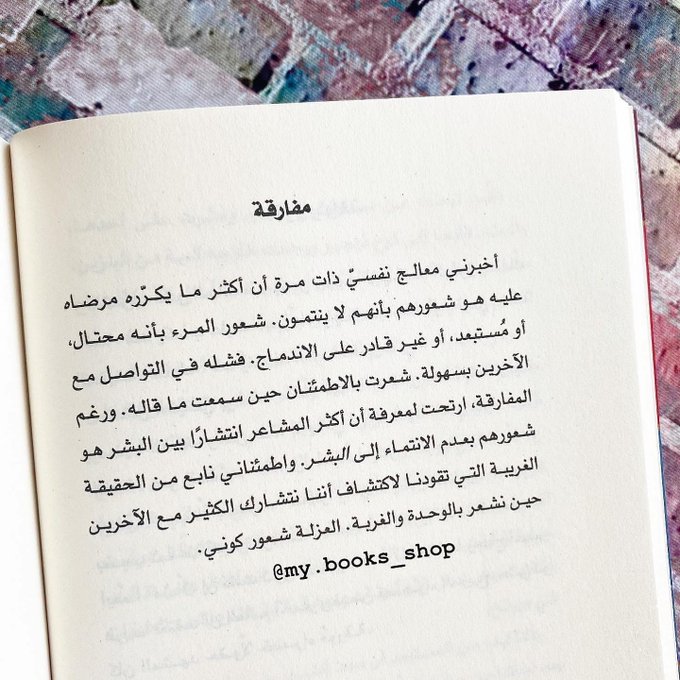 مفارقة
أخبرني معالج نفسيّ ذات مرة أن أكثر ما يكرّره مرضاه
عليه هو شعورهم بأنهم لا ينتمون. شعور المرء بأنه محتال،
أو مُستبعد، أو غير قادر على الاندماج. فشله في التواصل مع
الآخرين بسهولة. شعرت بالاطمئنان حين سمعت ما قاله. ورغم
المفارقة، ارتحت لمعرفة أن أكثر المشاعر انتشارًا بين البشر هو
شعورهم بعدم الانتماء إلى البشر. واطمئناني نابع من الحقيقة
الغريبة التي تقودنا لاكتشاف أننا نتشارك الكثير مع الآخرين
حين نشعر بالوحدة والغربة. العزلة شعور كوني.
@my.books_shop